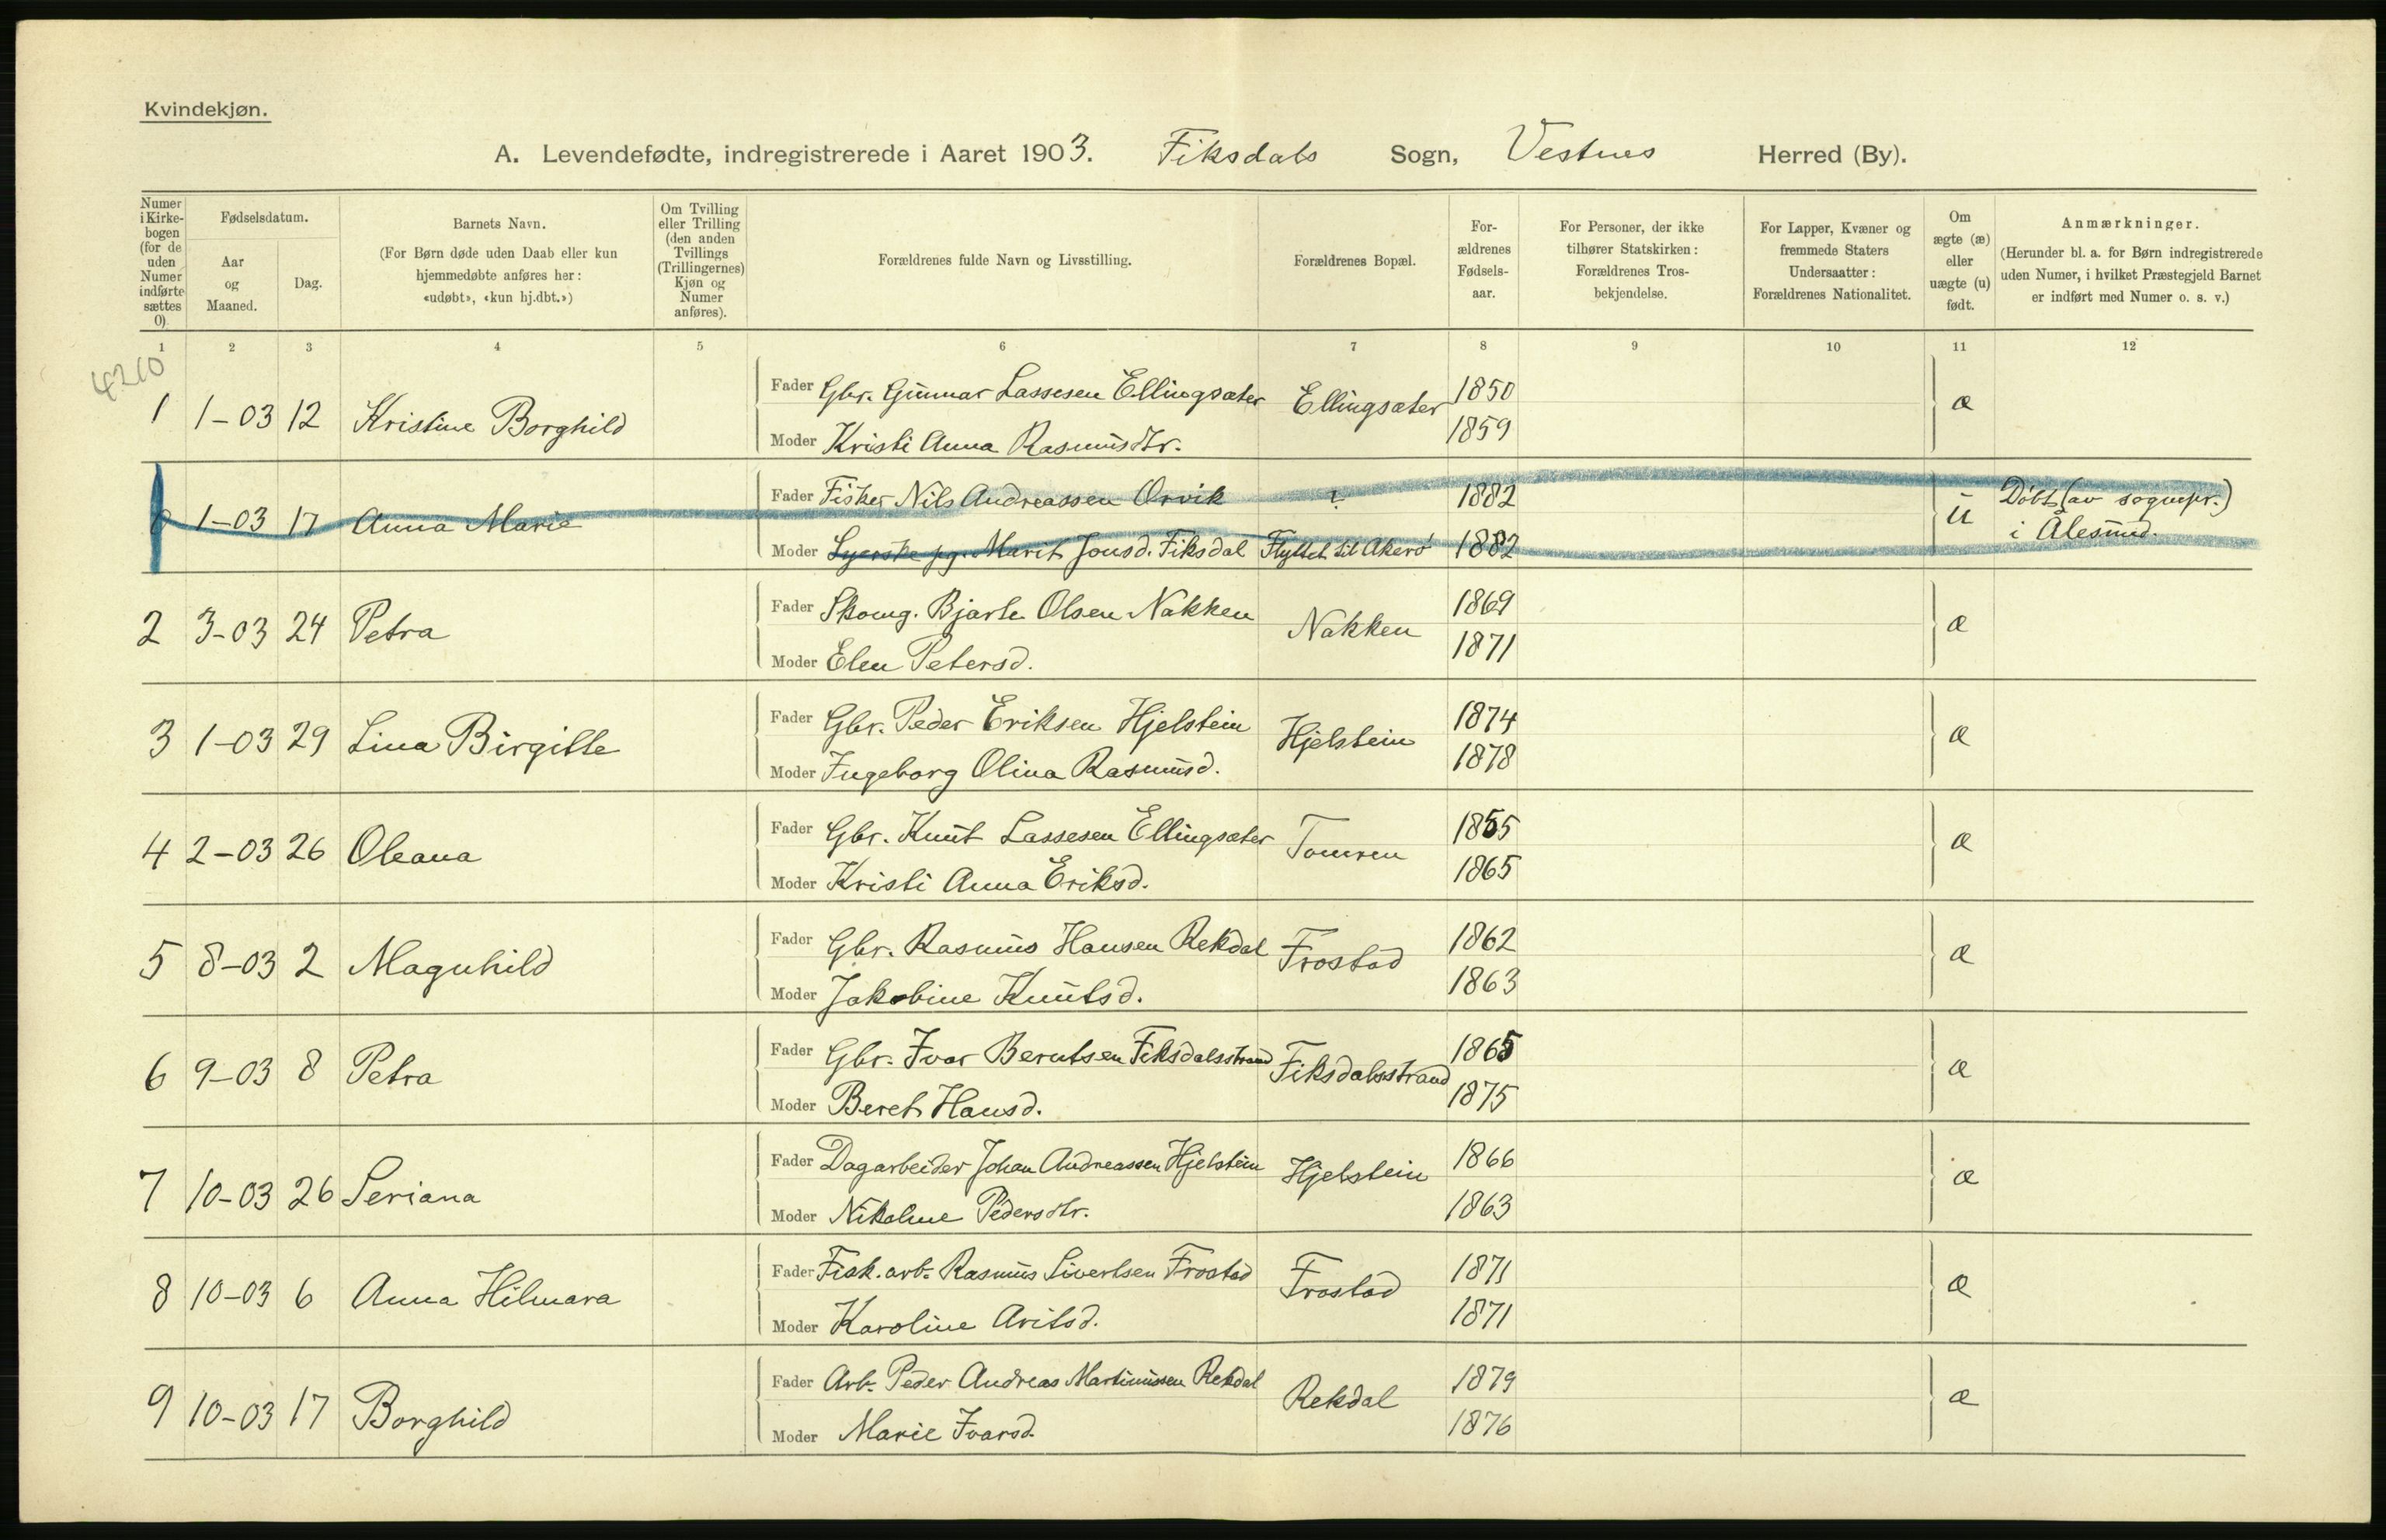 Kvindekjøn.
A. Levendefødte, indregistrerede i Aaret 1903. Fiksdals Sogn, Vestnes Herred (By).
Numer i Kirke- bogen (for de uden Numer indførte sættes 0)
Fødselsdatum.
Aar og Maaned.
Dag.
Barnets Navn.
(For Børn døde uden Daab eller kun hjemmedøbte anføres her: «udøbt», «kun hj.dbt.»)
Om Tvilling eller Trilling (den anden Tvillings (Trillingernes) Kjøn og Numer anføres).
Forældrenes fulde Navn og Livsstilling.
Forældrenes Bopæl.
For- ældrenes Fødsels- aar.
For Personer, der ikke tilhører Statskirken: Forældrenes Tros- bekjendelse.
For Lapper, Kvæner og fremmede Staters Undersaatter: Forældrenes Nationalitet.
Om ægte (æ) eller uægte (u) født.
Anmærkninger.
(Herunder bl. a. for Børn indregistrerede uden Numer, i hvilket Præstegjeld Barnet er indført med Numer o. s. v.)
1 2 3 4 5 6 7 8 9 10 11 12
4210
1 1-03 12 Kristine Borghild Fader Gbr. Gunnar Lassesen Ellingsæter Ellingsæter 1850 æ
Moder Kristi Anna Rasmusdtr. 1859
0 1-03 17 Anna Marie Fader Fisker Nils Andreassen Orvik ? 1882 u Døbt (av sognepr.)
Moder Syerske pg. Marit Jonsd. Fiksdal Flyttet til Akerø 1882 i Ålesund.
2 3-03 24 Petra Fader Skomg. Bjarte Olsen Nakken Nakken 1869 æ
Moder Elen Petersd. 1871
3 1-03 29 Lina Birgitte Fader Gbr. Peder Eriksen Hjelstein Hjelstein 1874 æ
Moder Ingeborg Olina Rasmusd. 1878
4 2-03 26 Oleana Fader Gbr. Knut Lassesen Ellingsæter Tomren 1855 æ
Moder Kristi Anna Eriksd. 1865
5 8-03 2 Magnhild Fader Gbr. Rasmus Hansen Rekdal Frostad 1862 æ
Moder Jakobine Knutsd. 1863
6 9-03 8 Petra Fader Gbr. Ivar Berntsen Fiksdalsstrand Fiksdalsstrand 1865 æ
Moder Beret Hansd. 1875
7 10-03 26 Seriana Fader Dagarbeider Johan Andreassen Hjelstein Hjelstein 1866 æ
Moder Nikoline Pedersdtr. 1863
8 10-03 6 Anna Hilmara Fader Fisk. arb. Rasmus Sivertsen Frostad Frostad 1871 æ
Moder Karoline Aritsd. 1871
9 10-03 17 Borghild Fader Arb. Peder Andreas Martinussen Rekdal Rekdal 1879 æ
Moder Marie Ivarsd. 1876